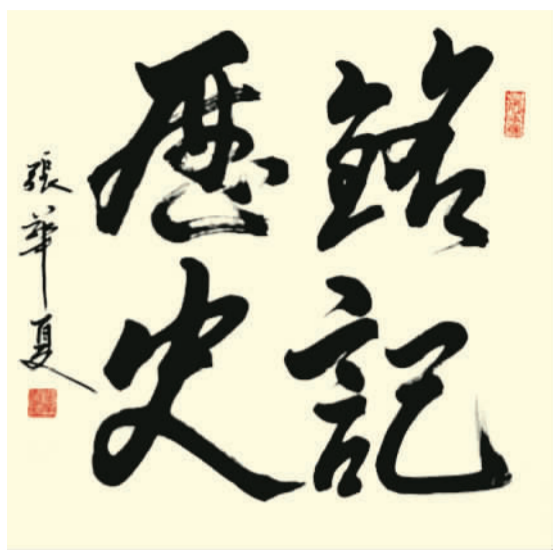 銘記
歷史
張華夏